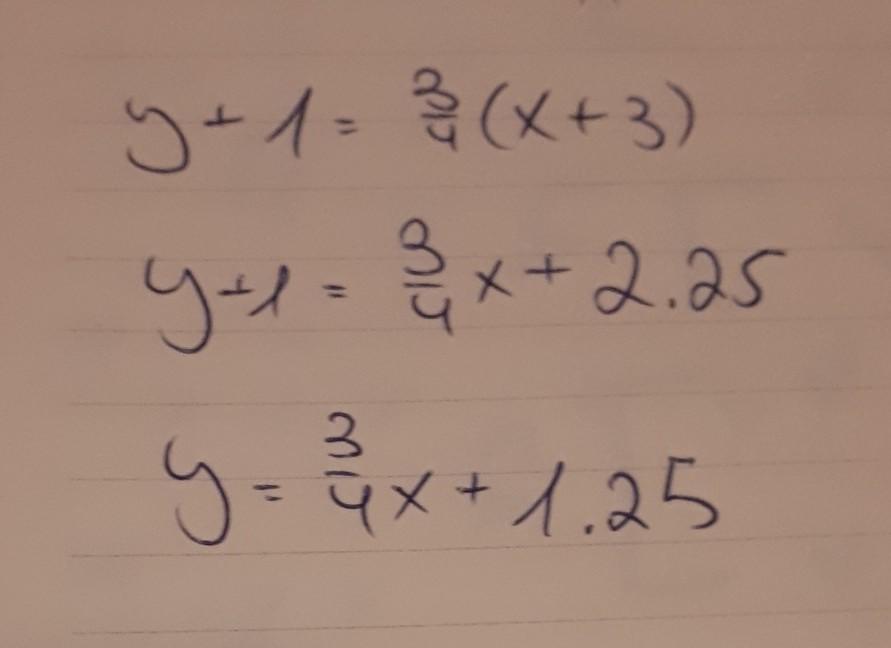 y + 1 = 3/4 (x + 3)
y + 1 = 3/4 x + 2.25
y = 3/4 x + 1.25